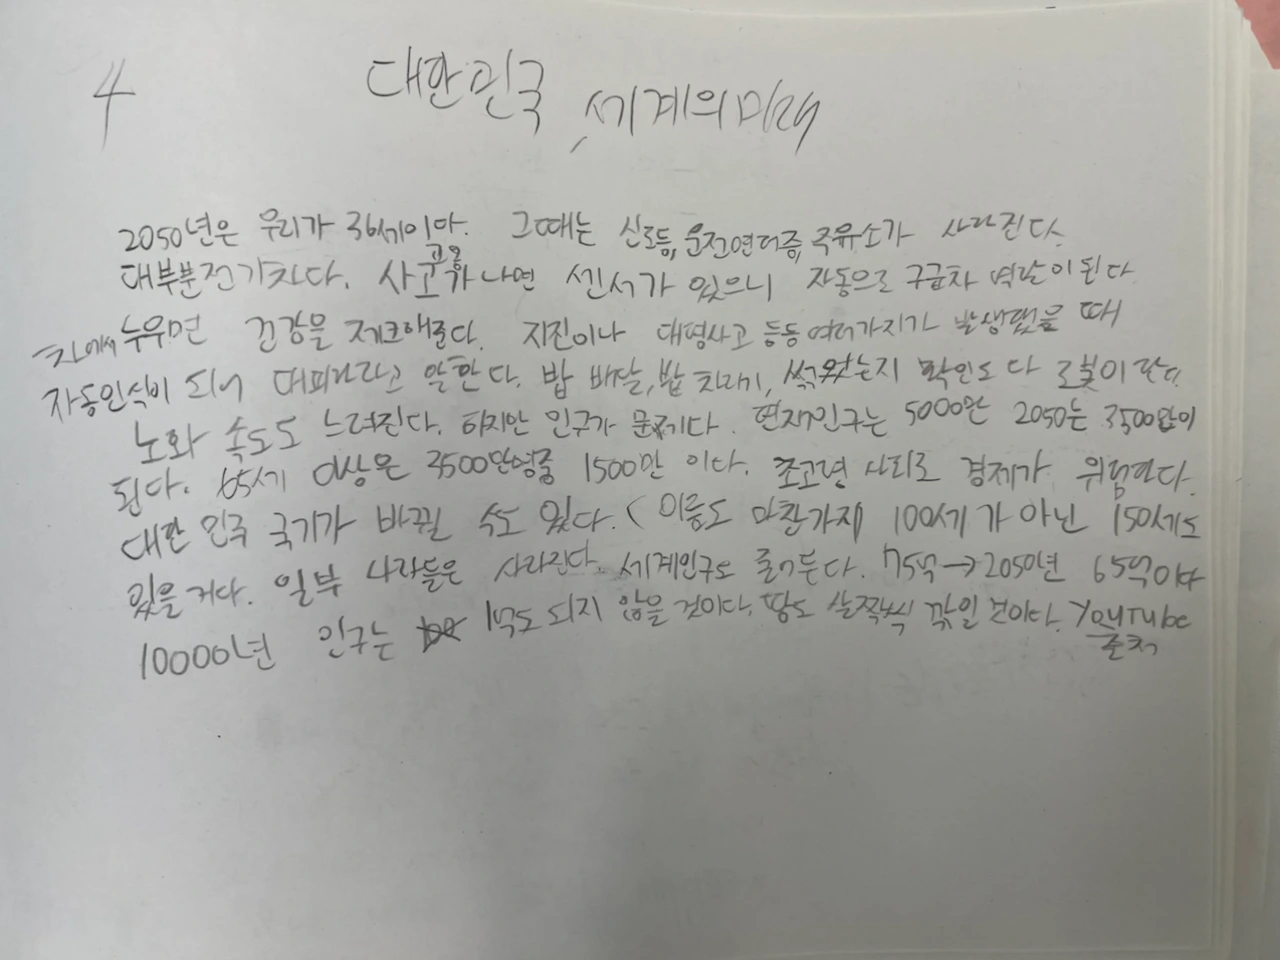 4
대한민국, 세계의 미래
2050년은 우리가 36세이다. 그때는 신호등, 운전면허증, 주유소가 사라진다.
대부분 전기차다. 사고가 나면 센서가 있으니 자동으로 구급차 역할이 된다
차에서 누우면 건강을 체크해준다. 지진이나 대형사고 등등 여러가지가 발생했을 때
자동인식이 되어 대피하라고 말한다. 밥 배달, 밥 차리기, 썩었는지 확인도 다 로봇이 한다.
노화 속도도 느려진다. 하지만 인구가 문제다. 현재인구는 5000만 2050는 3500만이
된다. 65세 이상은 3500만명중 1500만 이다. 초고령 사회로 경제가 위험하다.
대한 민국 국기가 바뀔 수도 있다. (이름도 마찬가지) 100세가 아닌 150세도
있을 거다. 일부 나라들은 사라진다. 세계인구도 줄어든다. 75억→2050년 65억이다
10000년 인구는 1억도 되지 않을 것이다. 땅도 살짝씩 깎일 것이다. YouTube
출처